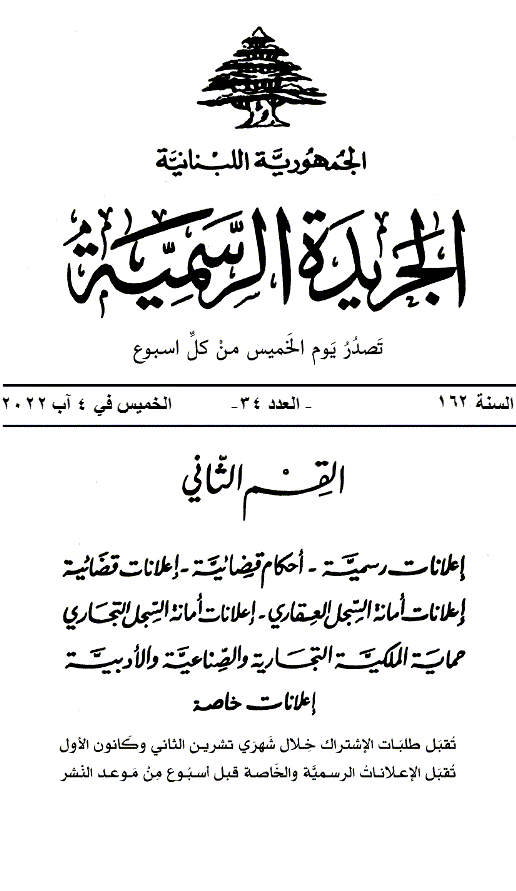 الجمهورية اللبنانية
الجريدة الرسمية
تَصدُرُ يَوم الخَميس منْ كلِّ اسبوع
السنة ١٦٢ - العدد ٣٤- الخميس في ٤ آب ٢٠٢٢
القِسْم الثّاني
إعلانات رسميَّة - أحكام قضائيَّة - إعلانات قضائية
إعلانات أمانة السِّجل العقاري - إعلانات أمانة السِّجل التجاري
حماية الملكيَّة التجارية والصِّناعيَّة والأدبيَّة
إعلانات خاصة
تُقبَل طلبَات الإشتراك خِلال شَهرَي تشرين الثاني وكَانون الأول
تُقبَل الإعلاناتُ الرسميَّة والخَاصة قبل أسبُوع مِنْ مَوعد النَشر